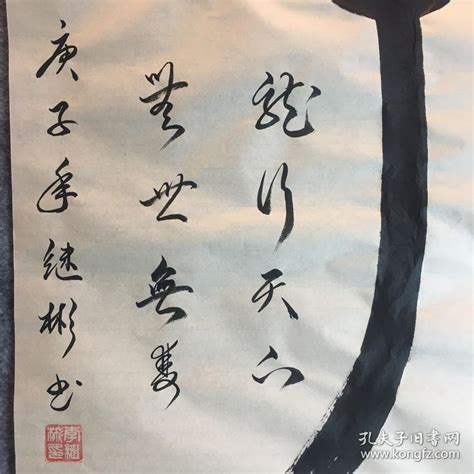 龍行天下
舉世無雙
庚子年继彬书
孔夫子旧书网
www.kongfz.com